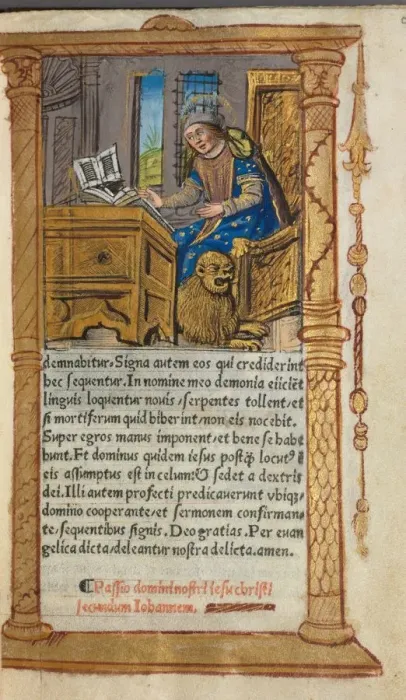 demnabitur. Signa autem eos qui crediderint
hec sequentur. In nomine meo demonia eiiciēt
linguis loquentur nouis / serpentes tollent / et
si mortiferum quid biberint / non eis nocebit.
Super egros manus imponent / et bene se habe
bunt. Et dominus quidem iesus postq̄ locutꝰ
eis assumptus est in celum: & sedet a dextris
dei. Illi autem profecti predicauerunt vbiqȝ /
domino cooperante / et sermonem confirman
te / sequentibus signis. Deo gratias. Per euan
gelica dicta / deleantur nostra delicta. amen.
¶ Passio domini nostri iesu christi
secundum Iohannem.